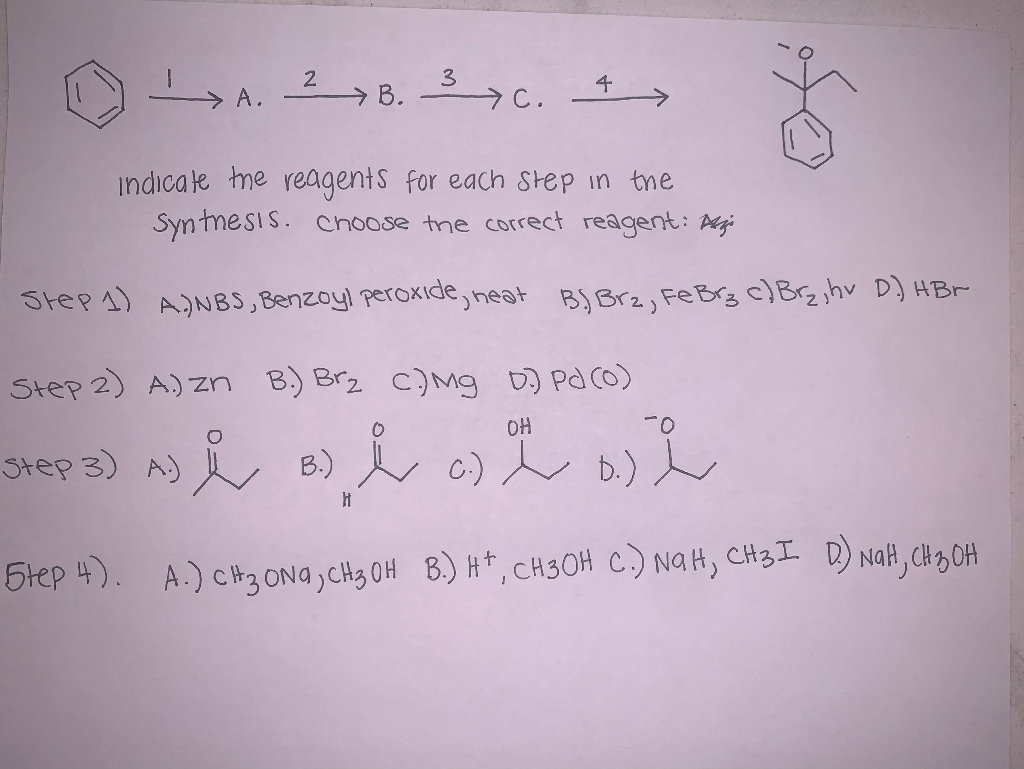 1 A. 2 B. 3 C. 4 -O
indicate the reagents for each step in the
synthesis. Choose the correct reagent:
Step 1) A.) NBS, Benzoyl peroxide, heat B.) Br2, FeBr3 c) Br2, hv D.) HBr
Step 2) A.) Zn B.) Br2 C.) Mg D.) Pd(0)
O O OH -O
Step 3) A.) B.) C.) D.)
H
Step 4). A.) CH3ONa, CH3OH B.) H+, CH3OH C.) NaH, CH3I D.) NaH, CH3OH